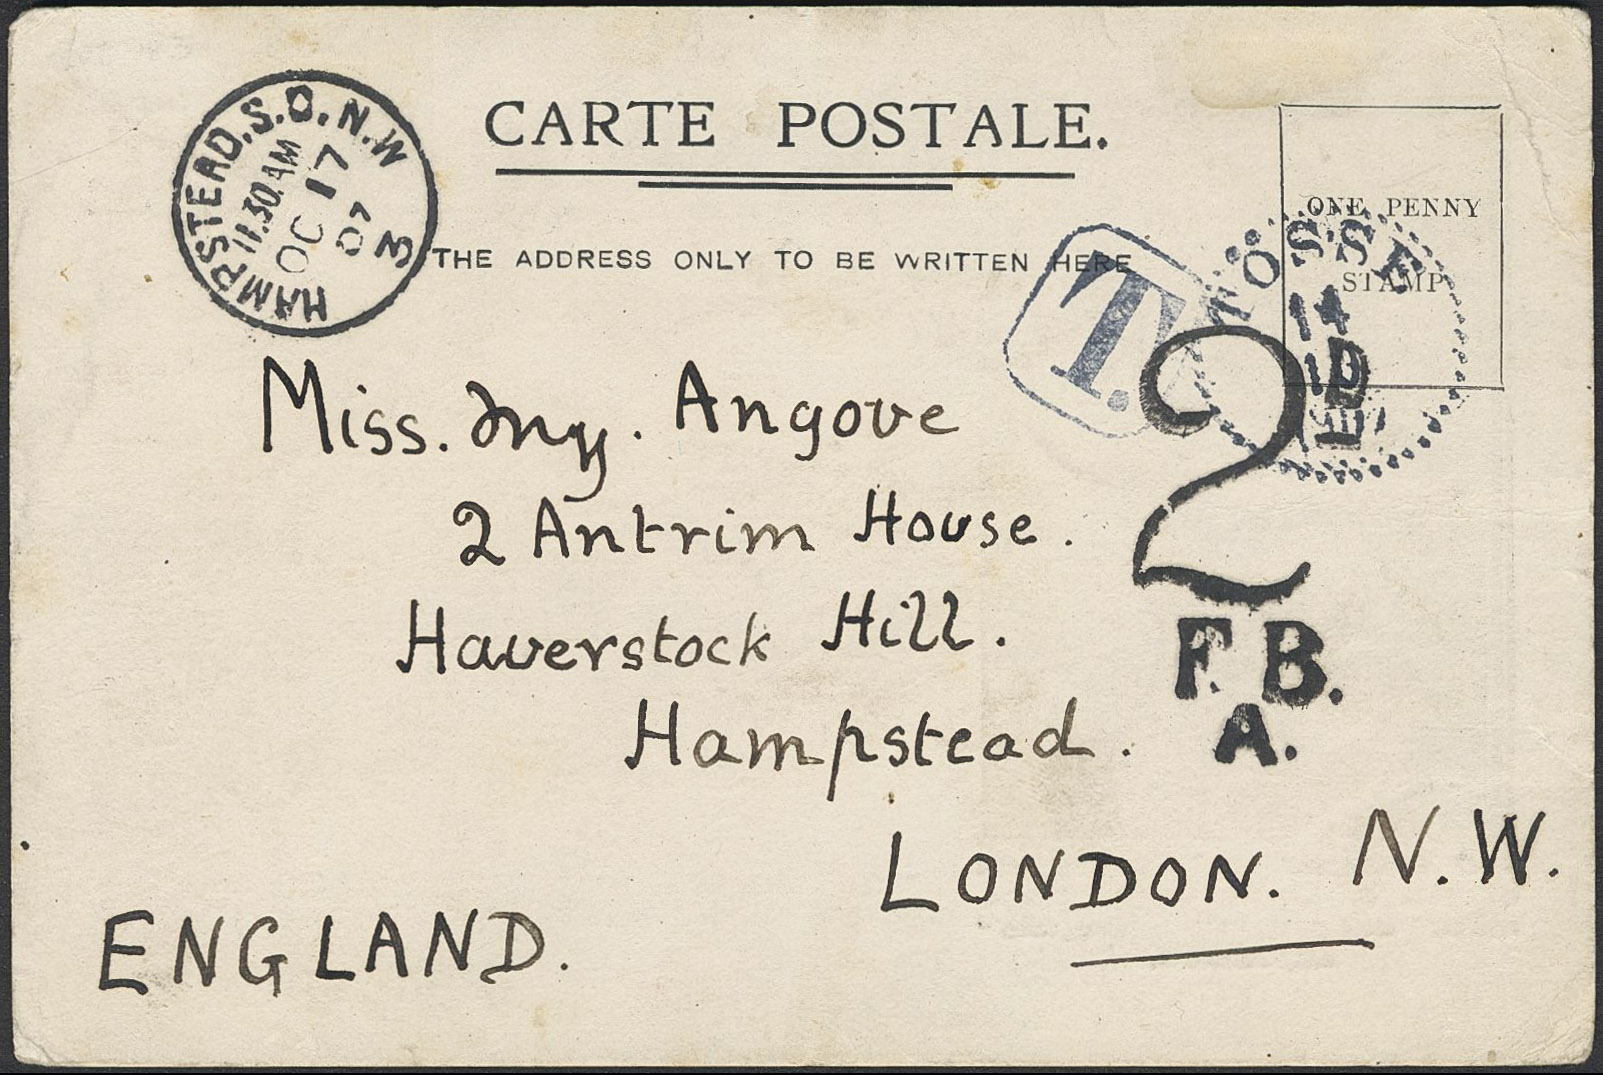 CARTE POSTALE.
HAMPSTEAD.S.O.N.W
11.30.AM
OC 17
07
3
THE ADDRESS ONLY TO BE WRITTEN HERE
ONE PENNY
STAMP
T.
14
2
Miss. Angove
2 Antrim House.
Haverstock Hill.
F.B.
A.
Hampstead.
LONDON. N.W.
ENGLAND.